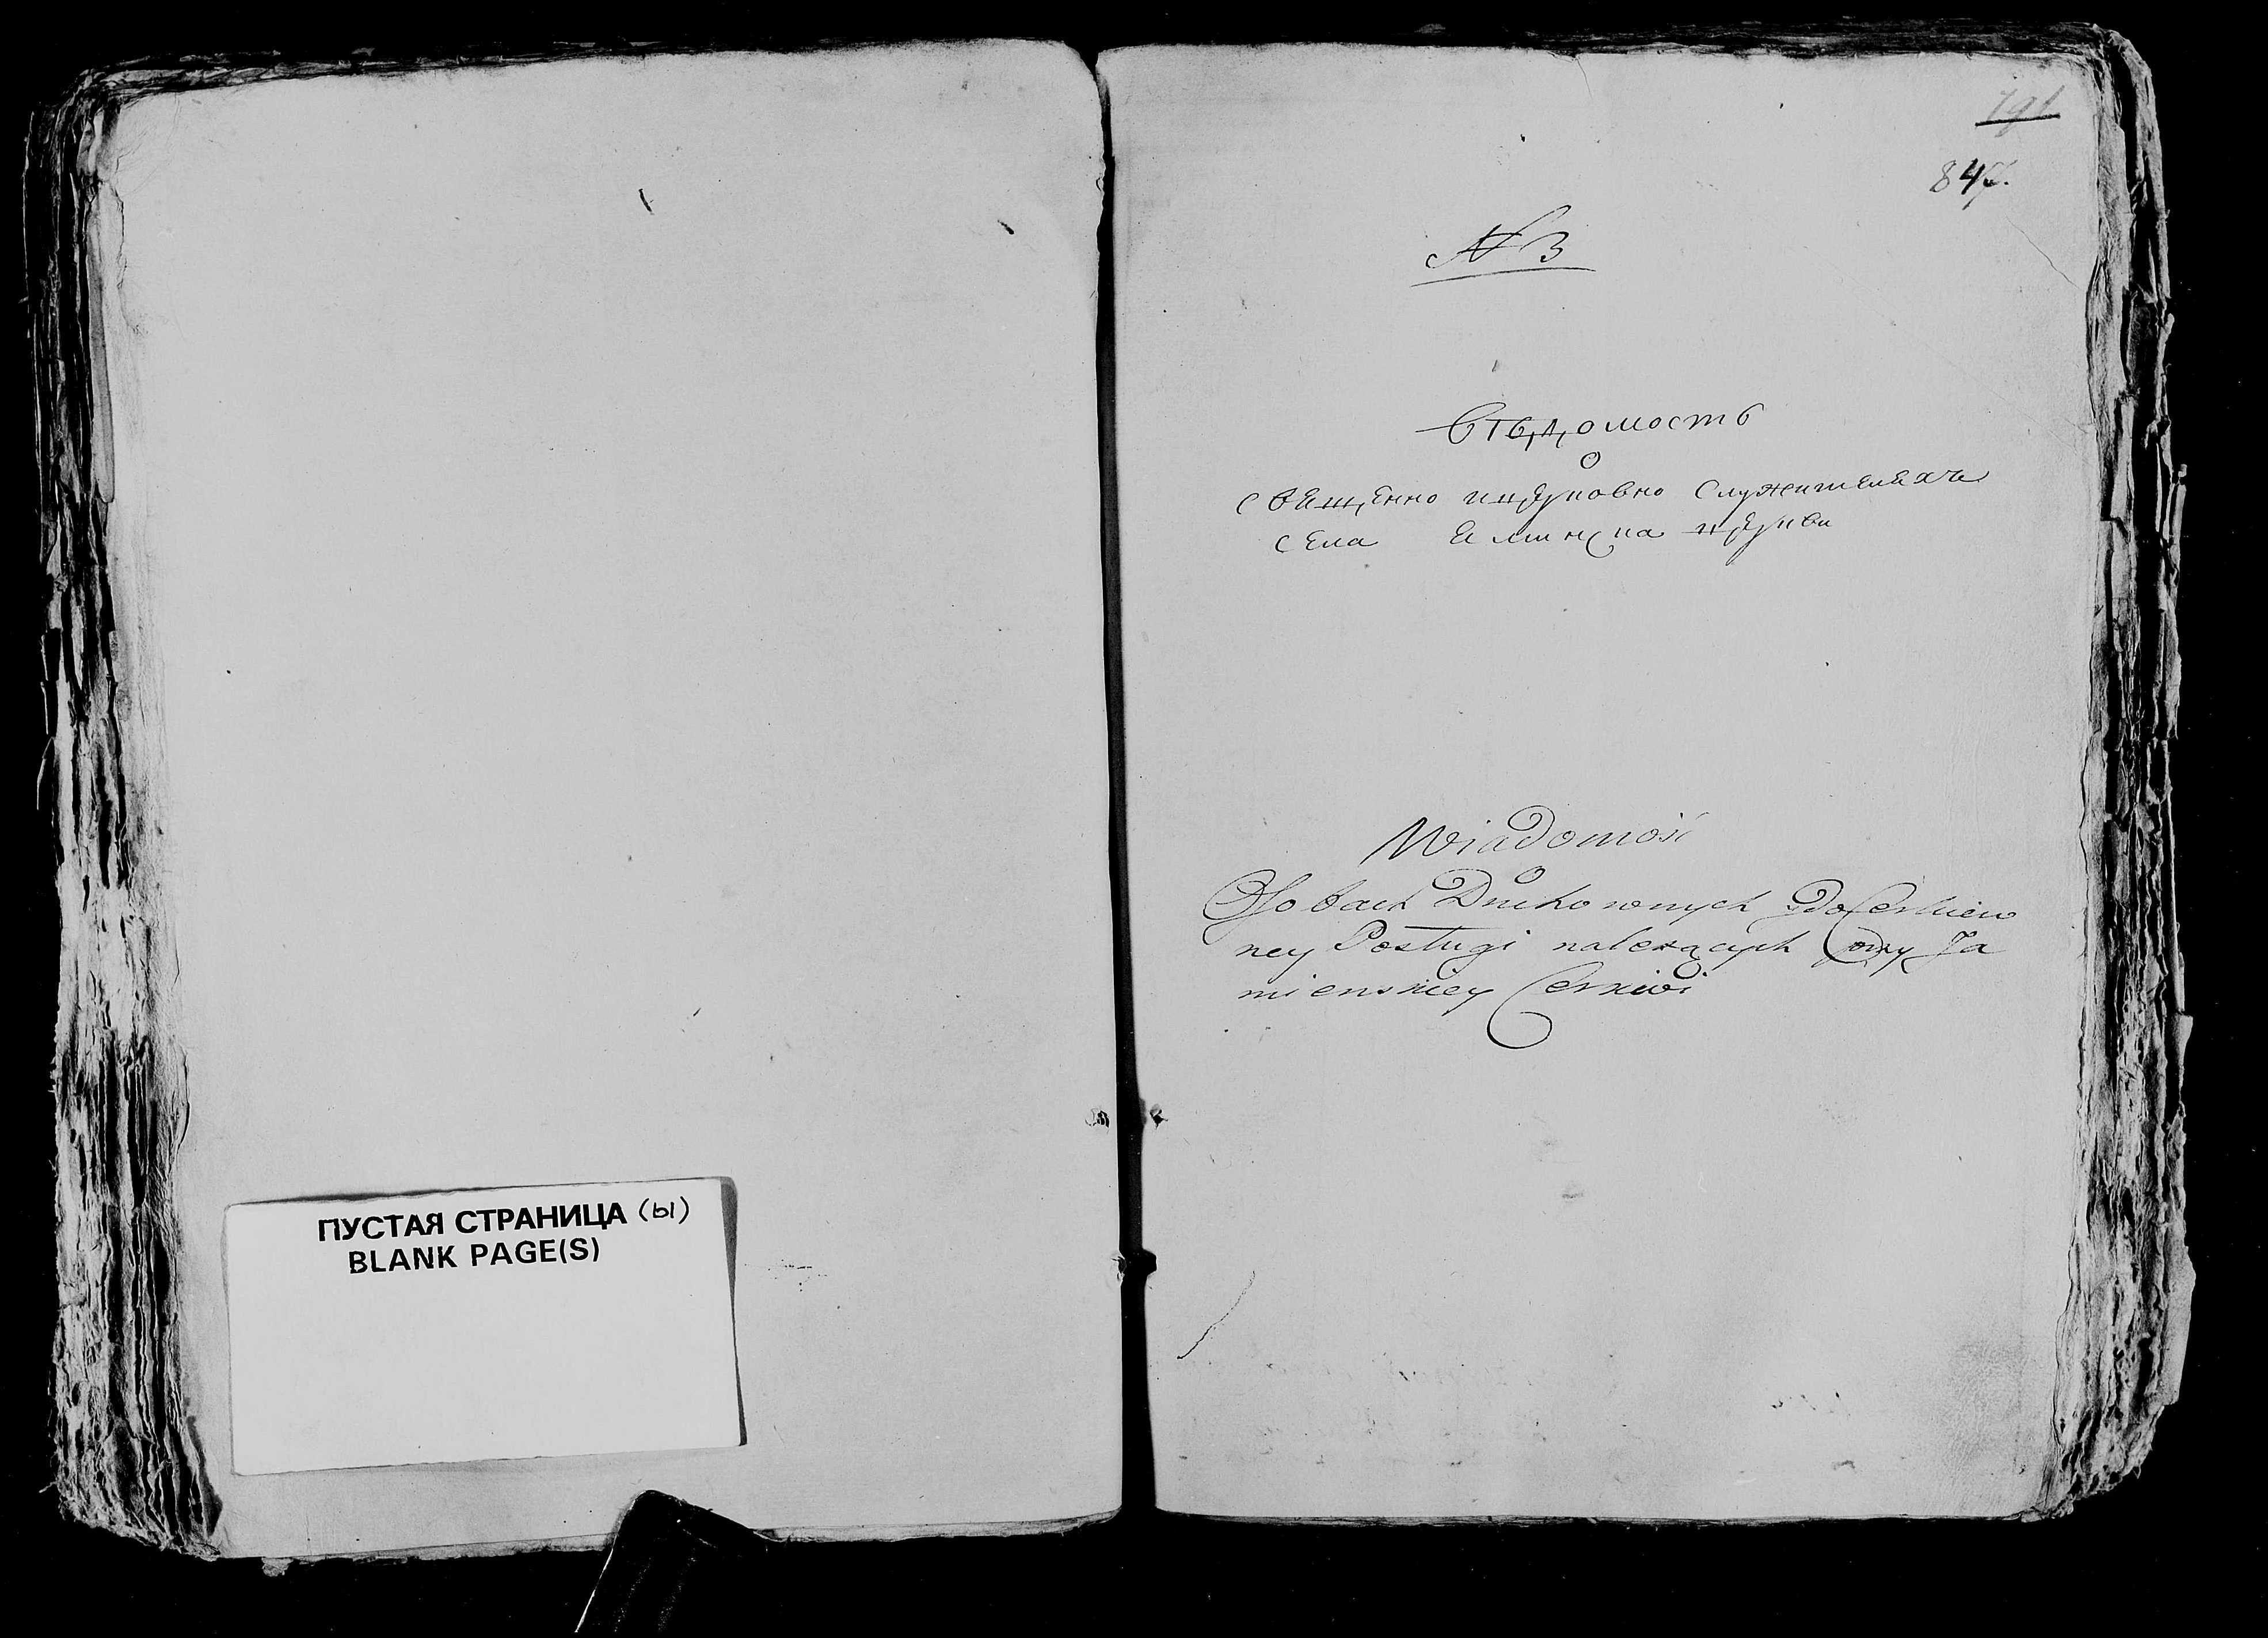 ПУСТАЯ СТРАНИЦА (ы)
BLANK PAGE(S)
847.
№ 3
Вѣдомость
О
Священно и церковно Служителяхъ
села церкви
Wiadomość
O
Osobach Duchownych do Cerkiew
ney Posługi należących przy Ja
mienskiey Cerkwi